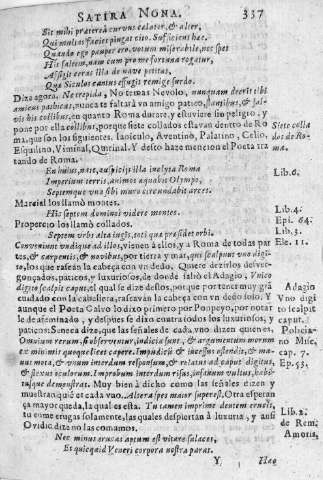 SATIRA NONA. 337
Sit mihi prætereà curvus cælator, & alter,
Qui multas facies pingat cito. Sufficiunt hæc.
Quando ego pauper ero. votum miserabile, nec spes
His saltem, nam cum pro me fortuna rogatur,
Affigit ceras illa de nave petitas,
Quæ Siculos cantus effugit remige surdo.
Dizo agora. Ne trepida, No temas Nevolo, nunquam deerit tibi
amicus pathicus, nunca te faltarà vn amigo patico, stantibus, & sal-
vis his collibus, en quanto Roma durare, y estuviere sin peligro, y
pone por ella collibus, porque siete collados estavan dentro de Ro-
ma, que son los siguientes. Ianiculo, Aventin, Palatino, Celio,
Esquilino, Viminal, Quirinal. Y desto haze mencion el Poeta tra
tando de Roma.
Siete colla
dos de Ro-
ma.
En huius, nate, auspicijs illa inclyta Roma
Lib. 6.
Imperium terris, animos æquabit Olympo,
Septemque vna sibi muro circundabit arces.
Marcial los llamò montes.
Lib. 4.
His septem dominos videre montes.
Epi. 64.
Propercio los llamò collados.
Lib. 3.
Septem vrbs alta iugis, toti quæ præsidet orbi.
Ele. 11.
Conveniunt vndique ad illos, vienen à ellos, y a Roma de todas par
tes, & carpentis, & navibus, por tierra y mar, qui scalpunt vno digi-
to, los que rascan la cabeça con vn dedo. Quiere dezir los desver-
gonçados, paticos, y luxuriosos, de donde saliò el Adagio, Vnico
digito scalpit caput, el qual se dize destos, por que por tener muy grã
cuidado con la cabellera, rascavan la cabeça con vn dedo solo. Y
aunque el Poeta Calvo lo dixo primero por Pompeyo, por notar
le de afeminado, y despues se dize contra todos los luxuriosos, y
paticos: Seneca dize, que las señales de cada vno dizen quien es.
Adagio
Vno digi
to scalpit
caput.
Policia-
no Misc,
cap. 7.
Ep. 53,
Omnium rerum, si observentur, indicia sunt, & argumentum morum
ex minimis quoque licet capere. Impudicũ & incessus ostendit, & ma-
nus mota, & vnum interdum responsum, & relatus ad caput digitus,
& flexus oculorum. Improbum interdum risus, insanum vultus, habi-
tusque demonstrat. Muy bien à dicho como las señales dizen y
muestran qui è es cada vno. Altera spes maior superest, Otra esperan
ça mayor queda, la qual es esta. Tu tamen imprime dentem erucis,
tu come erugas solamente, las quales despiertan à luxuria, y assi
Ovidio dize no las comamos.
Lib. 2.
de Rem-
Amoris,
Nec minus erucas aptum est vitare salaces,
Et quicquid Veneri corpora nostra parat.
Y, Hae